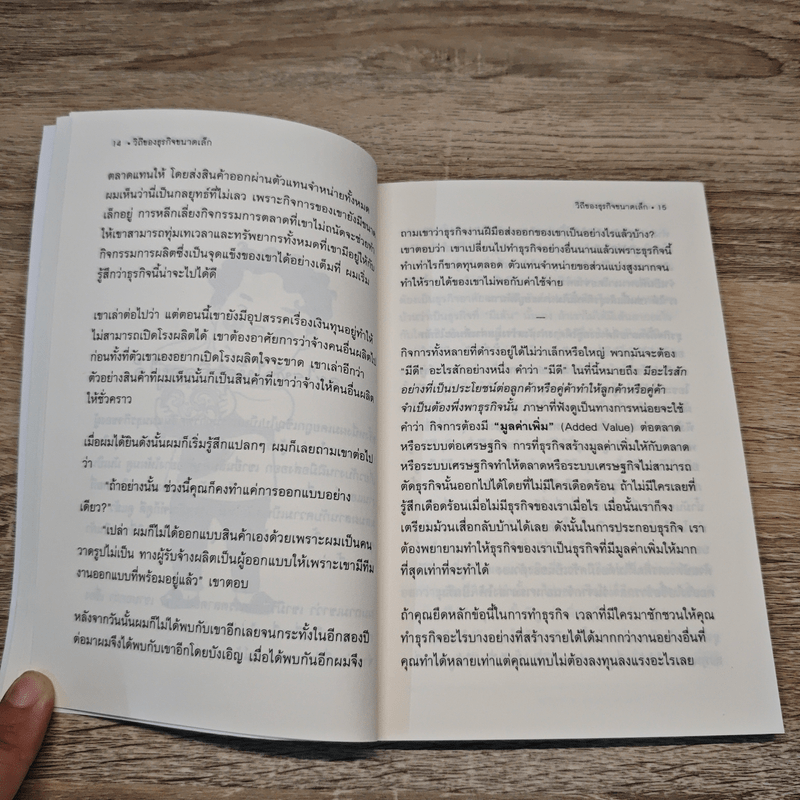 14 • วิถีของธุรกิจขนาดเล็ก
ตลาดแทนให้ โดยส่งสินค้าออกผ่านตัวแทนจำหน่ายทั้งหมด
ผมเห็นว่านี่เป็นกลยุทธ์ที่ไม่เลว เพราะกิจการของเขายังมีขนาด
เล็กอยู่ การหลีกเลี่ยงกิจกรรมการตลาดที่เขาไม่ถนัดจะช่วยทำ
ให้เขาสามารถทุ่มเทเวลาและทรัพยากรทั้งหมดที่เขามีอยู่ให้กับ
กิจกรรมการผลิตซึ่งเป็นจุดแข็งของเขาได้อย่างเต็มที่ ผมเริ่ม
รู้สึกว่าธุรกิจนี้น่าจะไปได้ดี
เขาเล่าต่อไปว่า แต่ตอนนี้เขายังมีอุปสรรคเรื่องเงินทุนอยู่ทำให้
ไม่สามารถเปิดโรงผลิตได้ เขาต้องอาศัยการว่าจ้างคนอื่นผลิตไป
ก่อนทั้งที่ตัวเขาเองอยากเปิดโรงผลิตใจจะขาด เขาเล่าอีกว่า
ตัวอย่างสินค้าที่ผมเห็นนั้นก็เป็นสินค้าที่เขาว่าจ้างให้คนอื่นผลิต
ให้ชั่วคราว
เมื่อผมได้ยินดังนั้นผมก็เริ่มรู้สึกแปลกๆ ผมก็เลยถามเขาต่อไป
ว่า
"ถ้าอย่างนั้น ช่วงนี้คุณก็คงทำแค่การออกแบบอย่าง
เดียว?"
"เปล่า ผมก็ไม่ได้ออกแบบสินค้าเองด้วยเพราะผมเป็นคน
วาดรูปไม่เป็น ทางผู้รับจ้างผลิตเป็นผู้ออกแบบให้เพราะเขามีทีม
งานออกแบบที่พร้อมอยู่แล้ว" เขาตอบ
หลังจากวันนั้นผมก็ไม่ได้พบกับเขาอีกเลยจนกระทั้งในอีกสองปี
ต่อมาผมจึงได้พบกับเขาอีกโดยบังเอิญ เมื่อได้พบกันอีกผมจึง
วิถีของธุรกิจขนาดเล็ก • 15
ถามเขาว่าธุรกิจงานฝีมือส่งออกของเขาเป็นอย่างไรแล้วบ้าง?
เขาตอบว่า เขาเปลี่ยนไปทำธุรกิจอย่างอื่นนานแล้วเพราะธุรกิจนี้
ทำเท่าไรก็ขาดทุนตลอด ตัวแทนจำหน่ายขอส่วนแบ่งสูงมากจน
ทำให้รายได้ของเขาไม่พอกับค่าใช้จ่าย
—
กิจการทั้งหลายที่ดำรงอยู่ได้ไม่ว่าเล็กหรือใหญ่ พวกมันจะต้อง
"มีดี" อะไรสักอย่างหนึ่ง คำว่า "มีดี" ในที่นี้หมายถึง มีอะไรสัก
อย่างที่เป็นประโยชน์ต่อลูกค้าหรือคู่ค้าทำให้ลูกค้าหรือคู่ค้า
จำเป็นต้องพึ่งพาธุรกิจนั้น ภาษาที่ฟังดูเป็นทางการหน่อยจะใช้
คำว่า กิจการต้องมี "มูลค่าเพิ่ม" (Added Value) ต่อตลาด
หรือระบบต่อเศรษฐกิจ การที่ธุรกิจสร้างมูลค่าเพิ่มให้กับตลาด
หรือระบบเศรษฐกิจทำให้ตลาดหรือระบบเศรษฐกิจไม่สามารถ
ตัดธุรกิจนั้นออกไปได้โดยที่ไม่มีใครเดือดร้อน ถ้าไม่มีใครเลยที่
รู้สึกเดือดร้อนเมื่อไม่มีธุรกิจของเราเมื่อไร เมื่อนั้นเราก็จง
เตรียมม้วนเสื่อกลับบ้านได้เลย ดังนั้นในการประกอบธุรกิจ เรา
ต้องพยายามทำให้ธุรกิจของเราเป็นธุรกิจที่มีมูลค่าเพิ่มให้มาก
ที่สุดเท่าที่จะทำได้
ถ้าคุณยึดหลักข้อนี้ในการทำธุรกิจ เวลาที่มีใครมาชักชวนให้คุณ
ทำธุรกิจอะไรบางอย่างที่สร้างรายได้ได้มากกว่างานอย่างอื่นที่
คุณทำได้หลายเท่าแต่คุณแทบไม่ต้องลงทุนลงแรงอะไรเลย